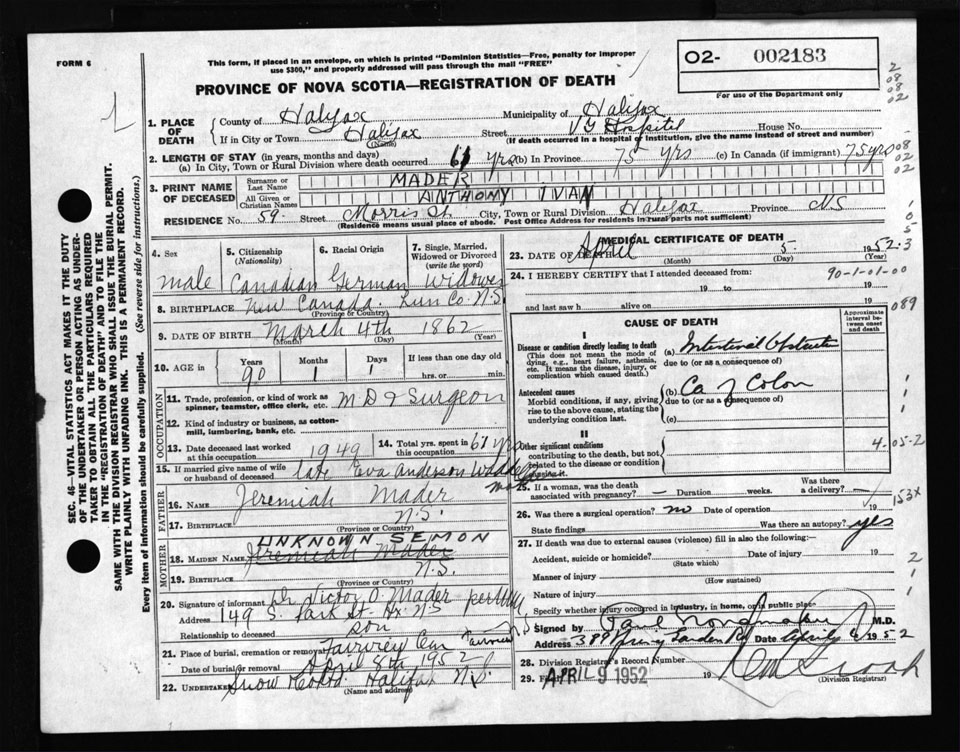 FORM 6
This form, if placed in an envelope, on which is printed "Dominion Statistics—Free, penalty for improper
use $300," and properly addressed will pass through the mail "FREE"
PROVINCE OF NOVA SCOTIA—REGISTRATION OF DEATH
02- 002183
For use of the Department only
2
08
08
02
1. PLACE OF DEATH
County of Halifax Municipality of Halifax
If in City or Town Halifax (Name) Street VG Hospital House No.
(If death occurred in a hospital or institution, give the name instead of street and number)
2. LENGTH OF STAY (in years, months and days)
(a) In City, Town or Rural Division where death occurred 61 yrs (b) In Province 75 yrs (c) In Canada (if immigrant) 75 yrs
08
02
02
3. PRINT NAME OF DECEASED
Surname or Last Name MADER
All Given or Christian Names ANTHONY IVAN
RESIDENCE No. 59. Street Morris St. City, Town or Rural Division Halifax Province NS
(Residence means usual place of abode. Post Office addresses in rural parts not sufficient)
SEC. 46—VITAL STATISTICS ACT MAKES IT THE DUTY
OF THE UNDERTAKER OR PERSON ACTING AS UNDER-
TAKER TO OBTAIN ALL THE PARTICULARS REQUIRED
IN THE "REGISTRATION OF DEATH" AND TO FILE THE
SAME WITH THE DIVISION REGISTRAR WHO SHALL ISSUE THE BURIAL PERMIT.
WRITE PLAINLY WITH UNFADING INK. THIS IS A PERMANENT RECORD.
Every item of information should be carefully supplied. (See reverse side for instructions.)
4. Sex male
5. Citizenship (Nationality) Canadian
6. Racial Origin German
7. Single, Married, Widowed or Divorced (write the word) Widower
8. BIRTHPLACE New Canada. Lun Co. N.S.
(Province or Country)
9. DATE OF BIRTH March 4th 1862
(Month) (Day) (Year)
10. AGE in Years 90 Months 1 Days 1 If less than one day old hrs. or min.
OCCUPATION
11. Trade, profession, or kind of work as spinner, teamster, office clerk, etc. M D & Surgeon
12. Kind of industry or business, as cotton-mill, lumbering, bank, etc.
13. Date deceased last worked at this occupation 1949
14. Total yrs. spent in this occupation 61 yrs
15. If married give name of wife or husband of deceased late Eva Anderson
FATHER
16. NAME Jeremiah Mader
17. BIRTHPLACE N.S.
(Province or Country)
MOTHER
UNKNOWN SEMON
18. MAIDEN NAME Jeremiah Mader
19. BIRTHPLACE N.S.
(Province or Country)
20. Signature of informant Dr Victor O. Mader per
Address 149 S. Park St- Hx. N S
Relationship to deceased son
21. Place of burial, cremation or removal Fairview Cem Fairview N S
Date of burial or removal April 8th 1952
22. Undertaker Snow & Co Ltd. Halifax N.S.
(Name and address)
MEDICAL CERTIFICATE OF DEATH
23. DATE OF DEATH April 5 1952
(Month) (Day) (Year)
24. I HEREBY CERTIFY that I attended deceased from 19
90-1-01-00
and last saw h alive on 19
089
CAUSE OF DEATH
Approximate interval between onset and death
I
Disease or condition directly leading to death
(This does not mean the mode of dying, e.g., heart failure, asthenia, etc. It means the disease, injury, or complication which caused death.)
(a) Intestinal Obstruction
due to (or as a consequence of)
Antecedent causes
Morbid conditions, if any, giving rise to the above cause, stating the underlying condition last.
(b) Ca of Colon
due to (or as a consequence of)
(c)
II
Other significant conditions
contributing to the death, but not related to the disease or condition
4-05-2
25. If a woman, was the death associated with pregnancy? — Duration weeks. Was there a delivery? —
153X
26. Was there a surgical operation? no Date of operation 19
State findings Was there an autopsy? yes
27. If death was due to external causes (violence) fill in also the following:—
Accident, suicide or homicide? Date of injury 19
(State which)
Manner of injury
(How sustained)
Nature of injury
Specify whether injury occurred in industry, in home, or in public place
Signed by M.D.
Address 389 Spring Garden Rd Date April 1952
28. Division Registrar's Record Number
29. Filed APRIL 9 1952 19
(Division Registrar)